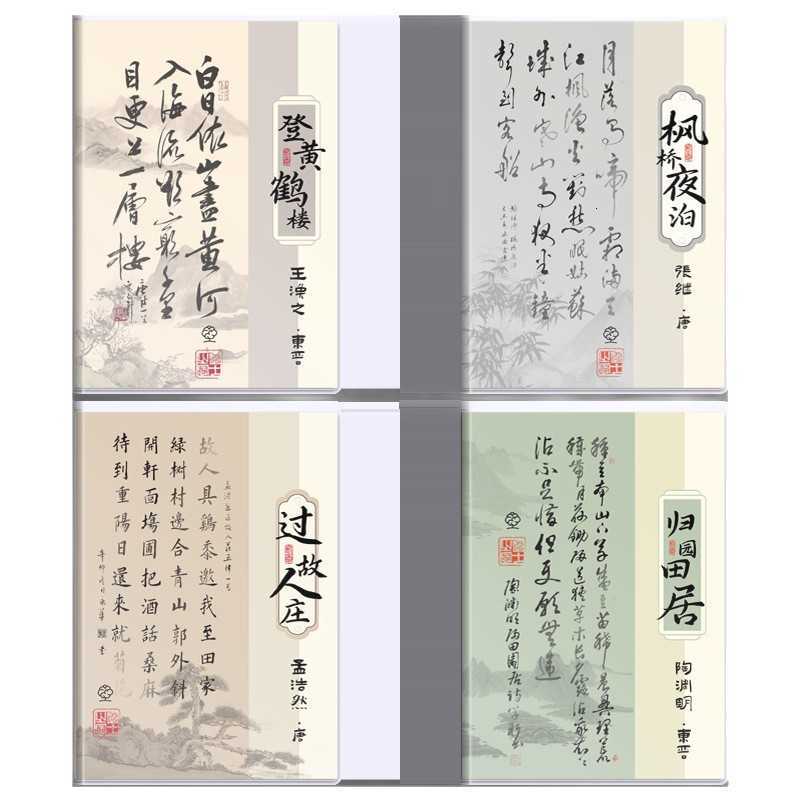 白日依山盡黄河
入海流欲窮千里
目更上一層樓
登黄鹤楼
王渙之·東晋
月落烏啼霜滿天
江楓漁火對愁眠姑蘇
城外寒山寺夜半鐘
聲到客船
枫桥夜泊
張继·唐
故人具鷄黍邀我至田家
緑树村邊合青山郭外斜
開軒面塲圃把酒話桑麻
待到重陽日還來就菊花
过故人庄
孟浩然·唐
種豆南山下草盛豆苗稀晨興理荒
穢帶月荷鋤歸道狹草木長夕露沾我衣衣
沾不足惜但使願無違
陶淵明歸田園居詩
归园田居
陶淵明·東晋